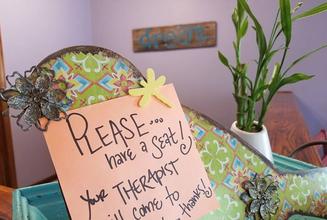 PLEASE...
have a seat!
Your THERAPIST
will come to
thanks!